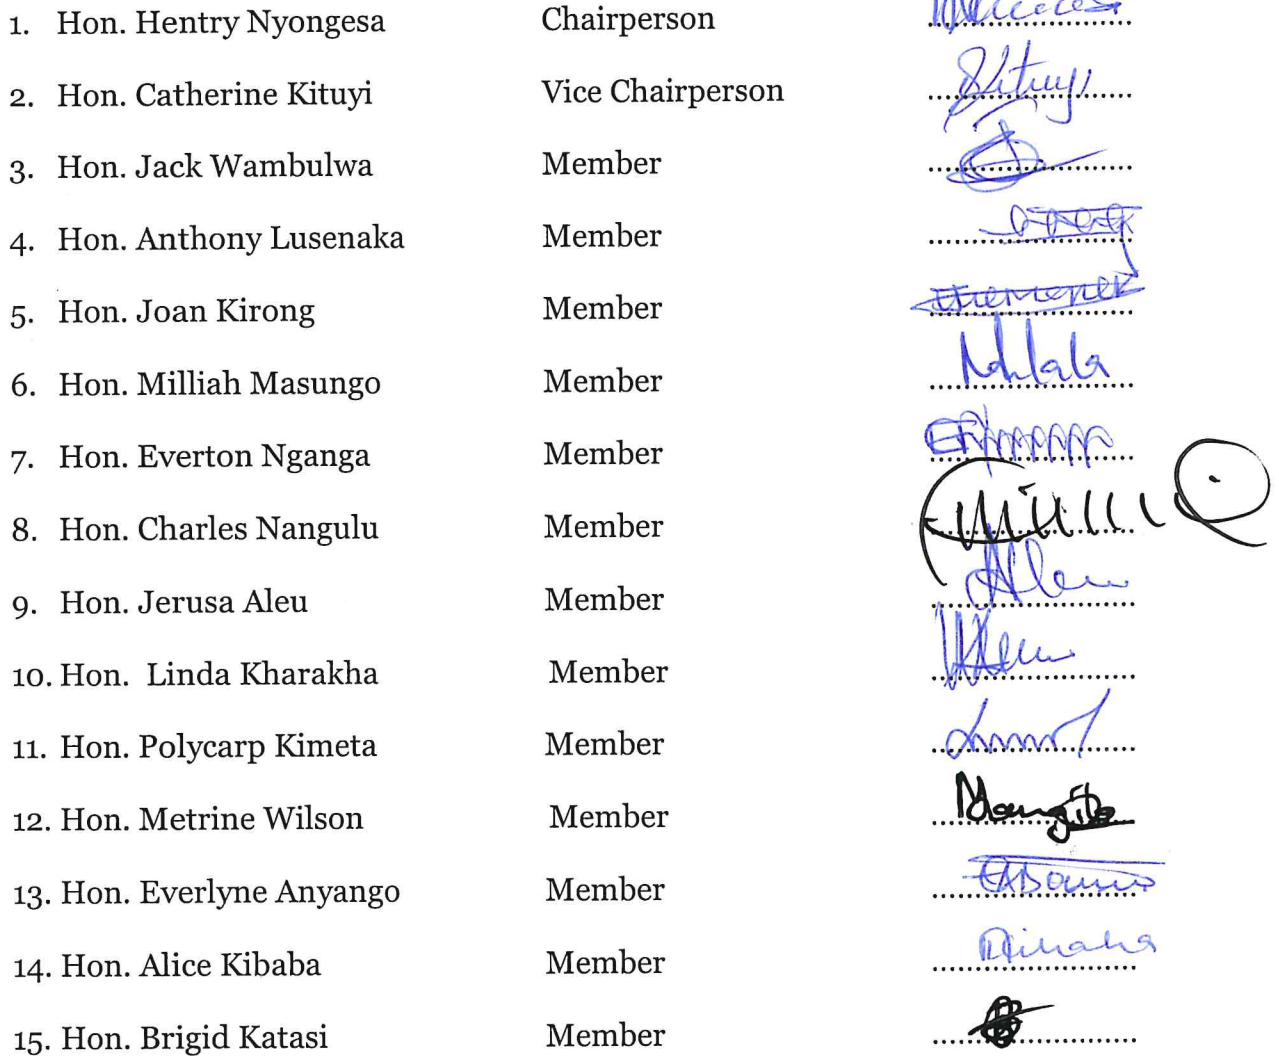 1. Hon. Hentry Nyongesa Chairperson ....................
2. Hon. Catherine Kituyi Vice Chairperson Kituyi ....................
3. Hon. Jack Wambulwa Member ....................
4. Hon. Anthony Lusenaka Member ....................
5. Hon. Joan Kirong Member ....................
6. Hon. Milliah Masungo Member ....................
7. Hon. Everton Nganga Member ....................
8. Hon. Charles Nangulu Member ....................
9. Hon. Jerusa Aleu Member ....................
10. Hon. Linda Kharakha Member ....................
11. Hon. Polycarp Kimeta Member ....................
12. Hon. Metrine Wilson Member ....................
13. Hon. Everlyne Anyango Member ....................
14. Hon. Alice Kibaba Member ....................
15. Hon. Brigid Katasi Member ....................